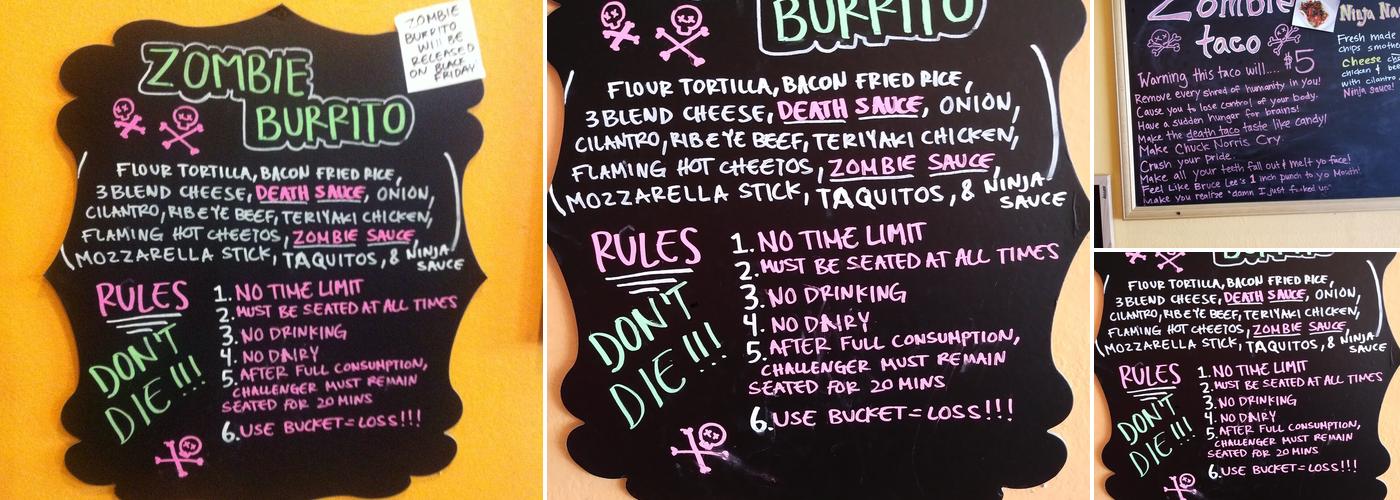 ZOMBIE
BURRITO
WILL BE
RELEASED
ON BLACK
FRIDAY
ZOMBIE
BURRITO
FLOUR TORTILLA, BACON FRIED RICE,
3 BLEND CHEESE, DEATH SAUCE, ONION,
CILANTRO, RIB EYE BEEF, TERIYAKI CHICKEN,
FLAMING HOT CHEETOS, ZOMBIE SAUCE,
MOZZARELLA STICK, TAQUITOS, & NINJA
SAUCE
RULES
DON'T
DIE!!!
1. NO TIME LIMIT
2. MUST BE SEATED AT ALL TIMES
3. NO DRINKING
4. NO DAIRY
5. AFTER FULL CONSUMPTION,
CHALLENGER MUST REMAIN
SEATED FOR 20 MINS
6. USE BUCKET = LOSS!!!
BURRITO
FLOUR TORTILLA, BACON FRIED RICE,
3 BLEND CHEESE, DEATH SAUCE, ONION,
CILANTRO, RIB EYE BEEF, TERIYAKI CHICKEN,
FLAMING HOT CHEETOS, ZOMBIE SAUCE,
MOZZARELLA STICK, TAQUITOS, & NINJA-
SAUCE
RULES
DON'T
DIE!!!
1. NO TIME LIMIT
2. MUST BE SEATED AT ALL TIMES
3. NO DRINKING
4. NO DAIRY
5. AFTER FULL CONSUMPTION,
CHALLENGER MUST REMAIN
SEATED FOR 20 MINS
6. USE BUCKET = LOSS!!!
Zombie
taco
$5
Warning this taco will....
Remove every shred of humanity in you!
Cause you to lose control of your body.
Have a sudden hunger for brains!
Make the death taco taste like candy!
Make Chuck Norris Cry.
Crush your pride.
Make all your teeth fall out & melt yo face!
Feel Like Bruce Lee's 1 inch punch to yo Mouth!
Make you realize "damn I just fucked up"
Ninja
Fresh made
chips
Cheese
chicken &
with cilantro
Ninja sauce!
FLOUR TORTILLA, BACON FRIED RICE,
3 BLEND CHEESE, DEATH SAUCE, ONION,
CILANTRO, RIB EYE BEEF, TERIYAKI CHICKEN,
FLAMING HOT CHEETOS, ZOMBIE SAUCE,
MOZZARELLA STICK, TAQUITOS, & NINJA-
SAUCE
RULES
DON'T
DIE!!!
1. NO TIME LIMIT
2. MUST BE SEATED AT ALL TIMES
3. NO DRINKING
4. NO DAIRY
5. AFTER FULL CONSUMPTION,
CHALLENGER MUST REMAIN
SEATED FOR 20 MINS
6. USE BUCKET = LOSS!!!